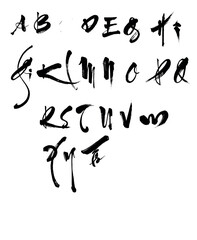 A B D E G H i
J K L M N O P Q
R S T U V W
X Y Z